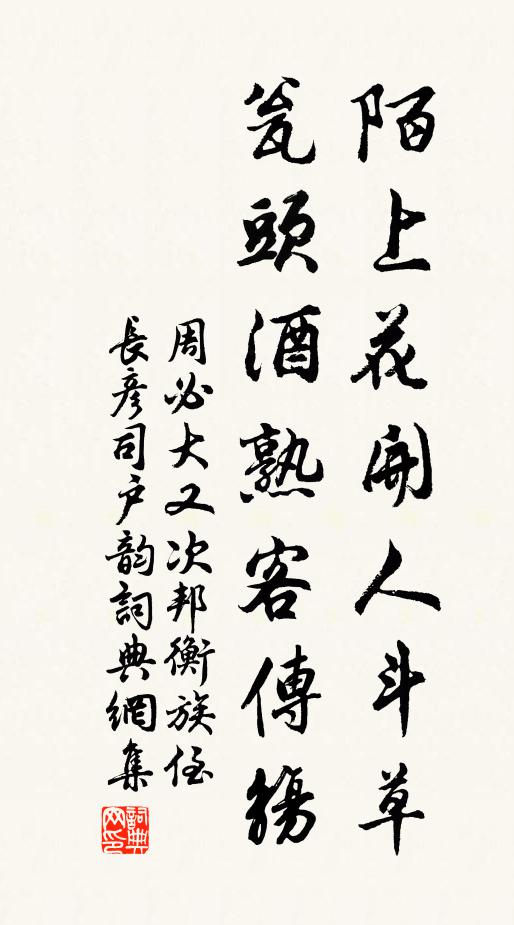 陌上花開人斗草
瓮頭酒熟客傳觴
周必大又次邦衡族侄
長彥司户韵詞典網集
詞典網印